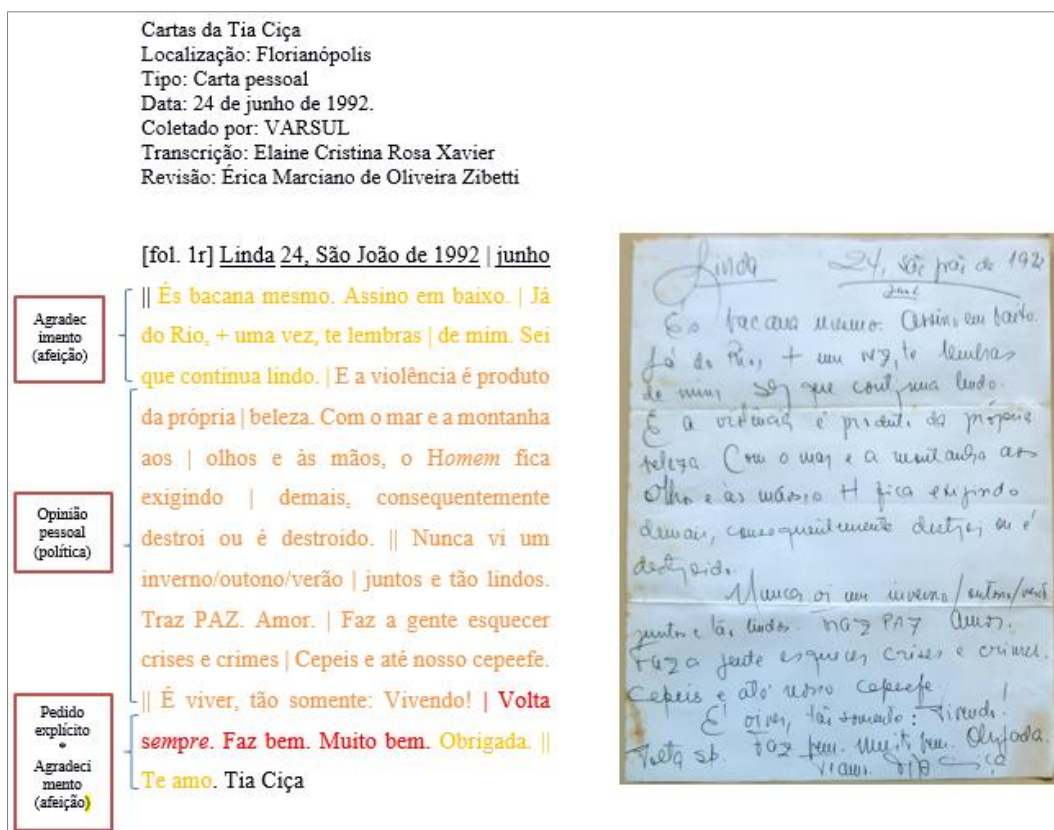 Cartas da Tia Ciça
Localização: Florianópolis
Tipo: Carta pessoal
Data: 24 de junho de 1992.
Coletado por: VARSUL
Transcrição: Elaine Cristina Rosa Xavier
Revisão: Érica Marciano de Oliveira Zibetti
[fol. 1r] Linda 24, São João de 1992 | junho
|| És bacana mesmo. Assino em baixo. | Já
do Rio, + uma vez, te lembras | de mim. Sei
que continua lindo. | E a violência é produto
da própria | beleza. Com o mar e a montanha
aos | olhos e às mãos, o Homem fica
exigindo | demais, consequentemente
destroi ou é destroido. || Nunca vi um
inverno/outono/verão | juntos e tão lindos.
Traz PAZ. Amor. | Faz a gente esquecer
crises e crimes | Cepeis e até nosso cepeefe.
|| É viver, tão somente: Vivendo! | Volta
sempre. Faz bem. Muito bem. Obrigada. ||
Te amo. Tia Ciça
Agradec
imento
(afeição)
Opinião
pessoal
(política)
Pedido
explícito
*
Agradeci
mento
(afeição)
Linda 24, São João de 1992
junho
És bacana mesmo. Assino em baixo.
Já do Rio, + um vez, te lembras
de mim, Sei que continua lindo.
E a violência é produto da própria
beleza. Com o mar e a montanha aos
olho e às mãos, o H fica exigindo
demais, consequentemente destroi ou é
destroido.
Nunca vi um inverno/outono/verão
juntos e tão lindos. Traz PAZ Amor.
Faz a gente esquecer crises e crimes.
Cepeis e até nosso cepeefe
É viver, tão somente: Vivendo!
Volta sp. Faz bem. Muito bem. Obrigada.
Tia Ciça